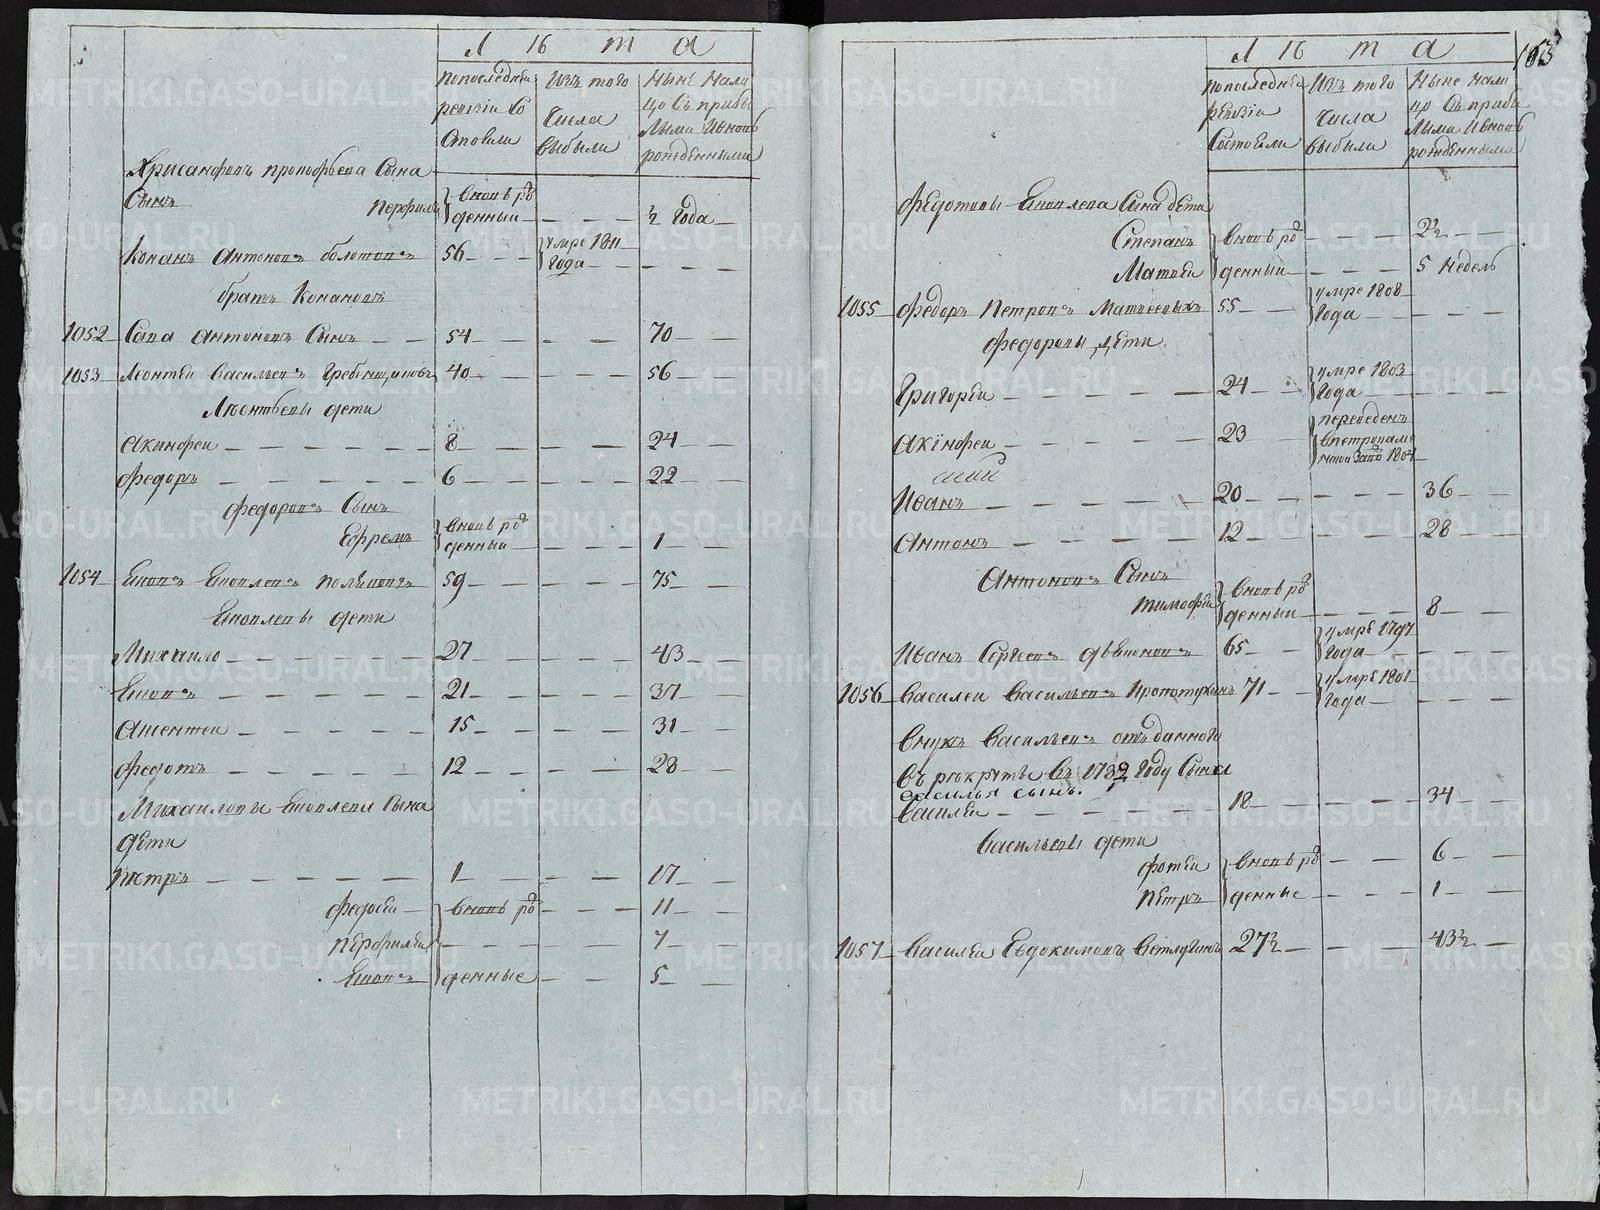 Л 16 т а
По последней ревизіи Состояли
Изъ того Числа Выбыли
Ныне Налицо Съ прибылыми И вновь рожденными
Хрисанфовъ прокофьева Сына
Сынъ Перфилей вновь рожденный — — — ½ Года —
Конанъ Антоновъ болотовъ 56 — — умре 1811 Года — — — —
братъ Конановъ
1052 Сава Антоновъ Сынъ — — 54 — — — — 70 —
1053 Леонтей Васильевъ Гребенщиковъ 40 — — — — 56 —
Леонтьевы дети
Акинфеи — — — — — 8 — — — — 24 —
Федоръ — — — — — 6 — — — — 22 —
Федоровъ Сынъ
Ефремъ вновь рожденныи — — — 1 —
1054 Еиовъ Еиовлевъ поляковъ 59 — — — — 75 —
Еиовлевы дети
Михаило — — — — — 27 — — — — 43 —
Еиовъ — — — — — 21 — — — — 37 —
Аментеи — — — — — 15 — — — — 31 —
Федотъ — — — — — 12 — — — — 28 —
Михаиловы Еиовлева Сына
Дети
Петръ — — — — — 1 — — — — 17 —
Федосеи — вновь рож — — — 11 —
Перфилеи — — — — 7 —
Еиовъ денные — — — 5 —
163
Л 16 т а
По последней ревизіи Состояли
Изъ того Числа выбыли
Ныне Налицо Съ прибылыми И вновь рожденными
Федотовы Еиовлева Сына дети
Степанъ вновь рож — — — 2½ —
Матвеи денныи — — — 5 Недель
1055 Федоръ Петровъ Матвеевыхъ 55 — умре 1808 Года — — — —
Федоровы Дети
Григореи — — — — 24 — умре 1803 Года — — — —
Акінфеи — — — — 23 переведенъ в петрокаменской Заво 1804
Иванъ — — — — 20 — — — 36 —
Антонъ — — — — 12 — — — 28 —
Антоновъ Сынъ
Тимофеи вновь рожденныи — — — 8 —
Иванъ Сергеевъ 65 — умре 1797 Года — — —
1056 Василеи Васильевъ 71 — умре 1801 Года — — —
Внукъ Васильевъ отъданного
Въ рекруты Въ 1782 Году Сына
василья сынъ.
Василеи — — — — 18 — — — 34 —
Васильевы дети
Фотеи вновь рож — — 6 —
Петръ денные — — — 1 —
1057 Василеи Евдокимовъ Ветлугинъ 27½ — — — 43½ —